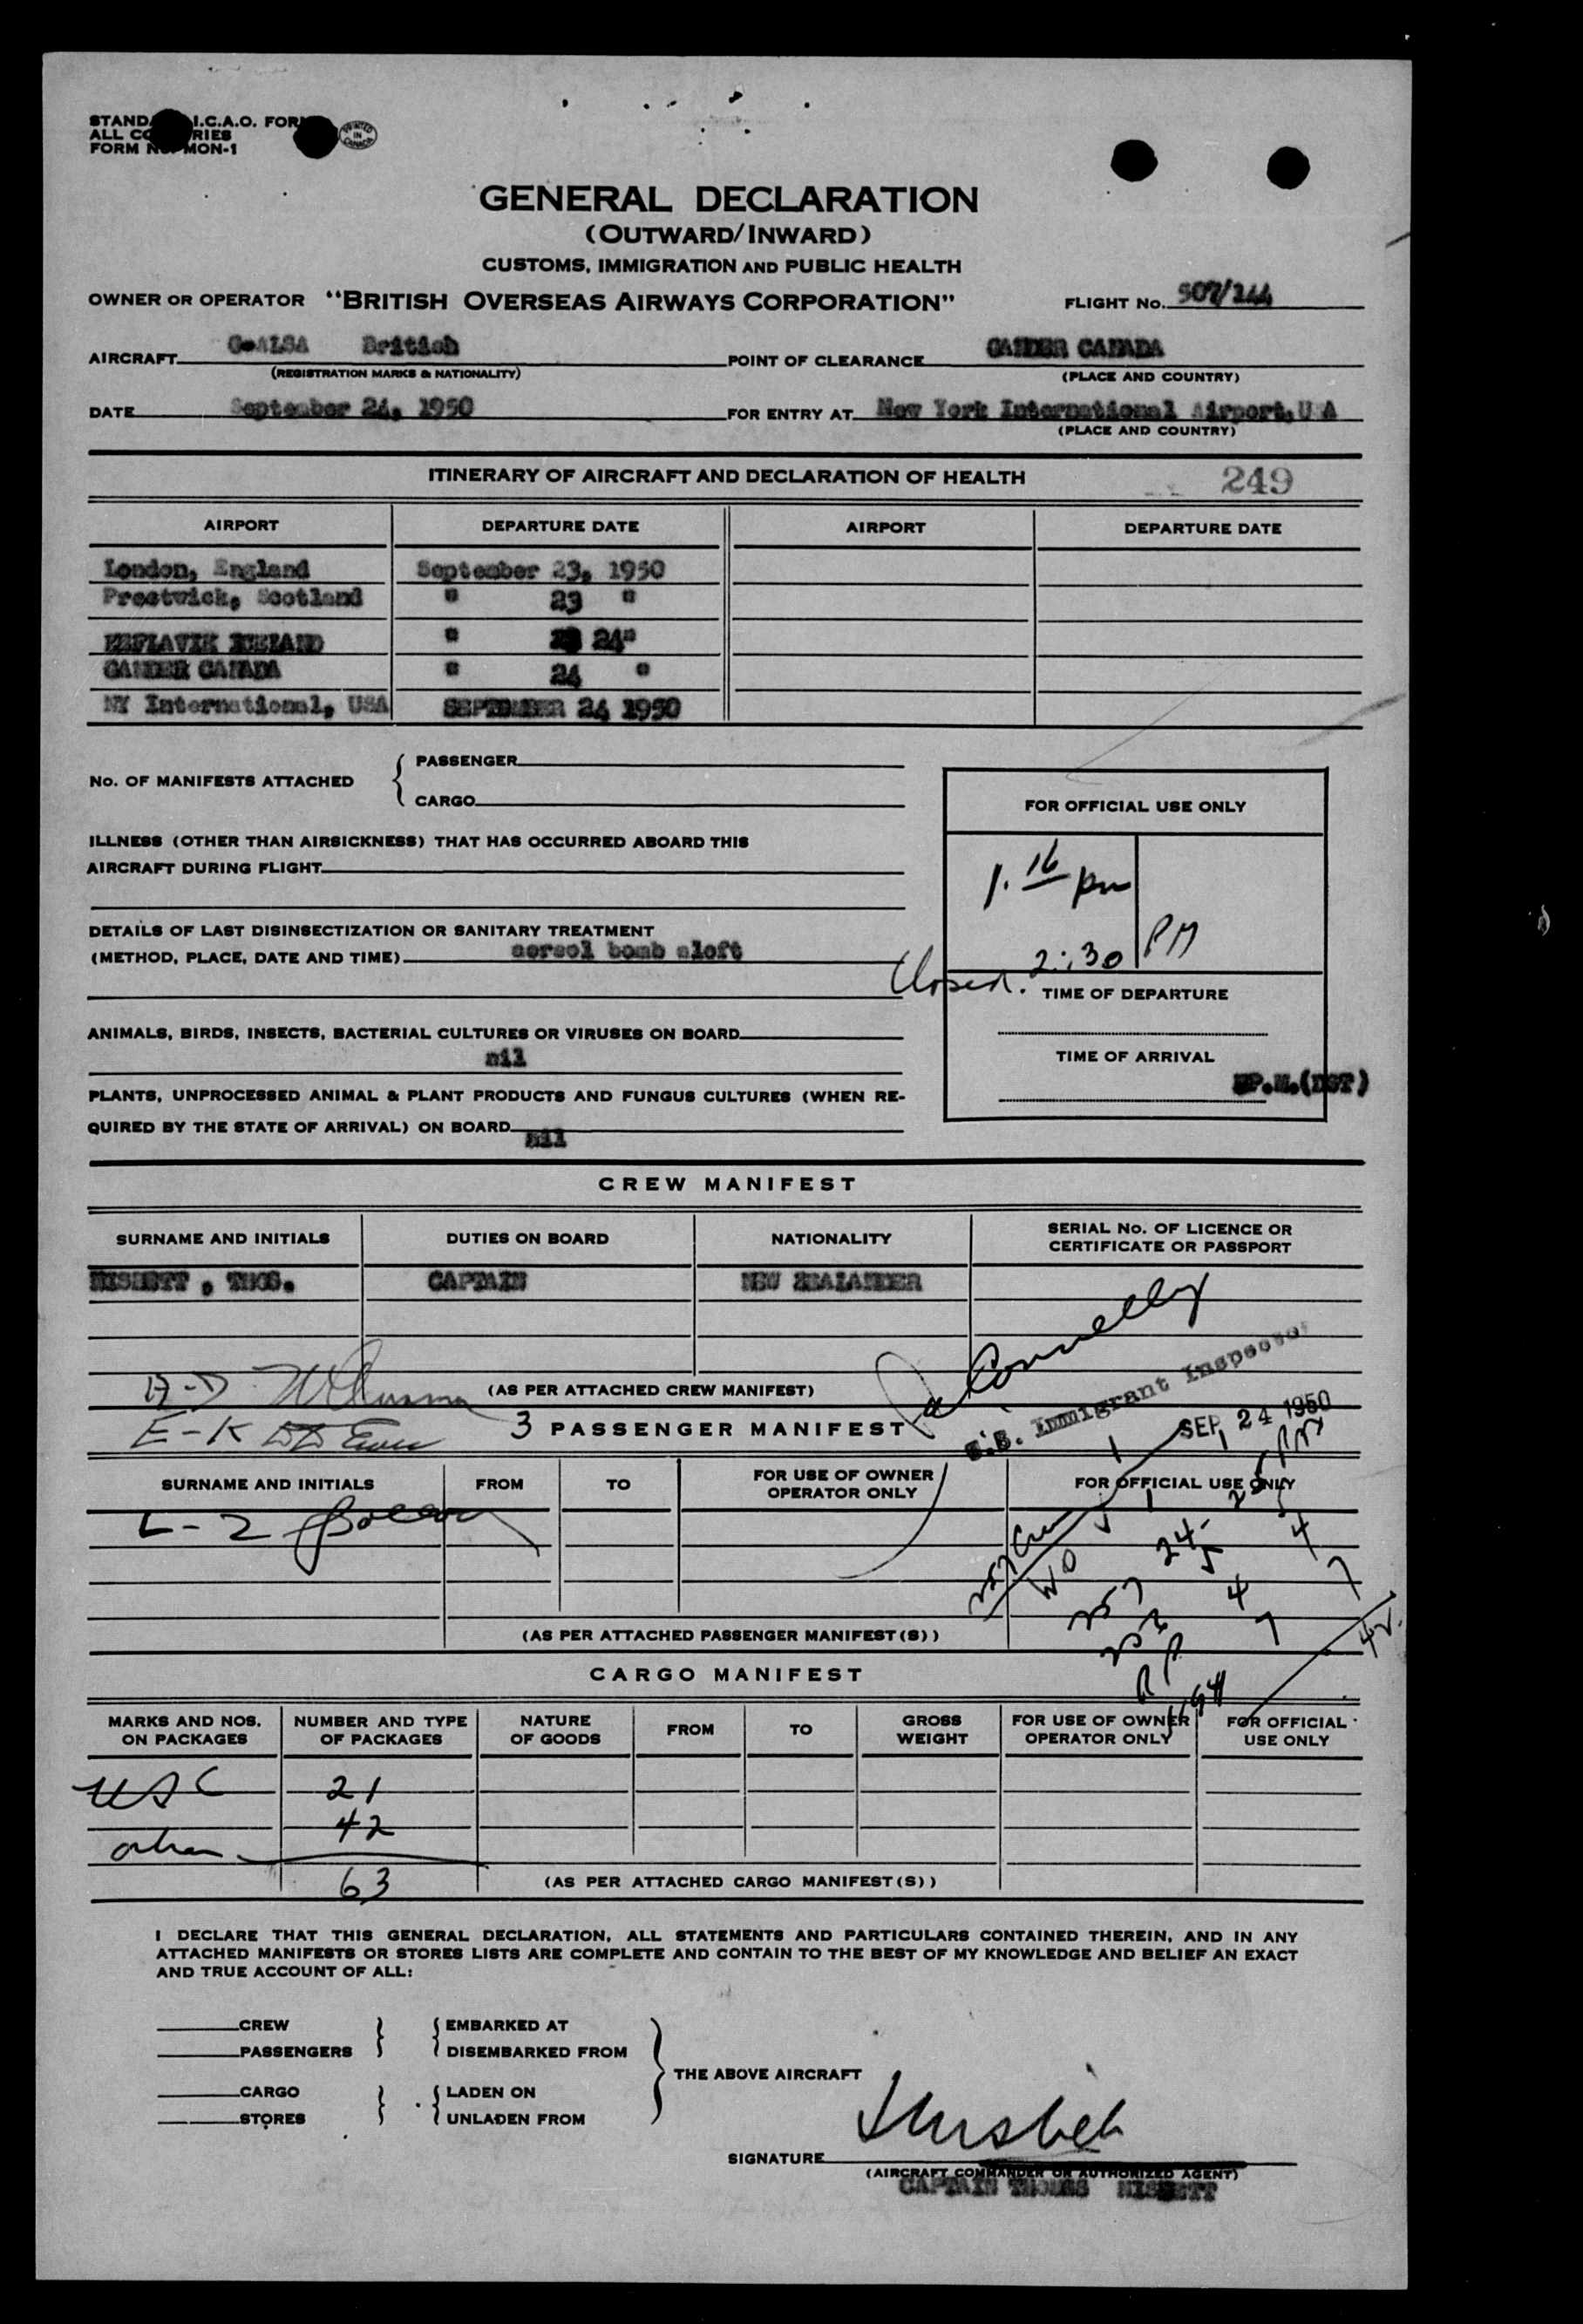 STANDA I.C.A.O. FOR
ALL CO RIES
FORM NO. MON-1
PRINTED IN CANADA
GENERAL DECLARATION
(OUTWARD/INWARD)
CUSTOMS, IMMIGRATION AND PUBLIC HEALTH
OWNER OR OPERATOR "BRITISH OVERSEAS AIRWAYS CORPORATION" FLIGHT No. 507/244
AIRCRAFT G-ALSA British POINT OF CLEARANCE GANDER CANADA
(REGISTRATION MARKS & NATIONALITY) (PLACE AND COUNTRY)
DATE September 24, 1950 FOR ENTRY AT New York International Airport, U S A
(PLACE AND COUNTRY)
ITINERARY OF AIRCRAFT AND DECLARATION OF HEALTH 249
AIRPORT DEPARTURE DATE AIRPORT DEPARTURE DATE
London, England September 23, 1950
Prestwick, Scotland " 23 "
KEFLAVIK ICELAND " 24"
GANDER CANADA " 24 "
NY International, USA SEPTEMBER 24 1950
No. OF MANIFESTS ATTACHED { PASSENGER
CARGO
FOR OFFICIAL USE ONLY
ILLNESS (OTHER THAN AIRSICKNESS) THAT HAS OCCURRED ABOARD THIS
AIRCRAFT DURING FLIGHT
1.16 pm
DETAILS OF LAST DISINSECTIZATION OR SANITARY TREATMENT
(METHOD, PLACE, DATE AND TIME) aersol bomb aloft
Closed. 2:30 PM
TIME OF DEPARTURE
ANIMALS, BIRDS, INSECTS, BACTERIAL CULTURES OR VIRUSES ON BOARD
nil
TIME OF ARRIVAL
P.M.(DST)
PLANTS, UNPROCESSED ANIMAL & PLANT PRODUCTS AND FUNGUS CULTURES (WHEN RE-
QUIRED BY THE STATE OF ARRIVAL) ON BOARD nil
CREW MANIFEST
SURNAME AND INITIALS DUTIES ON BOARD NATIONALITY SERIAL No. OF LICENCE OR CERTIFICATE OR PASSPORT
NISBETT , THOS. CAPTAIN NEW ZEALANDER
(AS PER ATTACHED CREW MANIFEST)
A-D
Connelly
U.S. Immigrant Inspector
SEP 24 1950
E-K
3 PASSENGER MANIFEST
SURNAME AND INITIALS FROM TO FOR USE OF OWNER OPERATOR ONLY FOR OFFICIAL USE ONLY
L-Z
(AS PER ATTACHED PASSENGER MANIFEST(S))
CARGO MANIFEST
MARKS AND NOS. ON PACKAGES NUMBER AND TYPE OF PACKAGES NATURE OF GOODS FROM TO GROSS WEIGHT FOR USE OF OWNER OPERATOR ONLY FOR OFFICIAL USE ONLY
USC 21
alien 42
63
(AS PER ATTACHED CARGO MANIFEST(S))
I DECLARE THAT THIS GENERAL DECLARATION, ALL STATEMENTS AND PARTICULARS CONTAINED THEREIN, AND IN ANY
ATTACHED MANIFESTS OR STORES LISTS ARE COMPLETE AND CONTAIN TO THE BEST OF MY KNOWLEDGE AND BELIEF AN EXACT
AND TRUE ACCOUNT OF ALL:
CREW EMBARKED AT
PASSENGERS DISEMBARKED FROM
THE ABOVE AIRCRAFT
CARGO LADEN ON
STORES UNLADEN FROM
SIGNATURE
(AIRCRAFT COMMANDER OR AUTHORIZED AGENT)
CAPTAIN THOMAS NISBETT